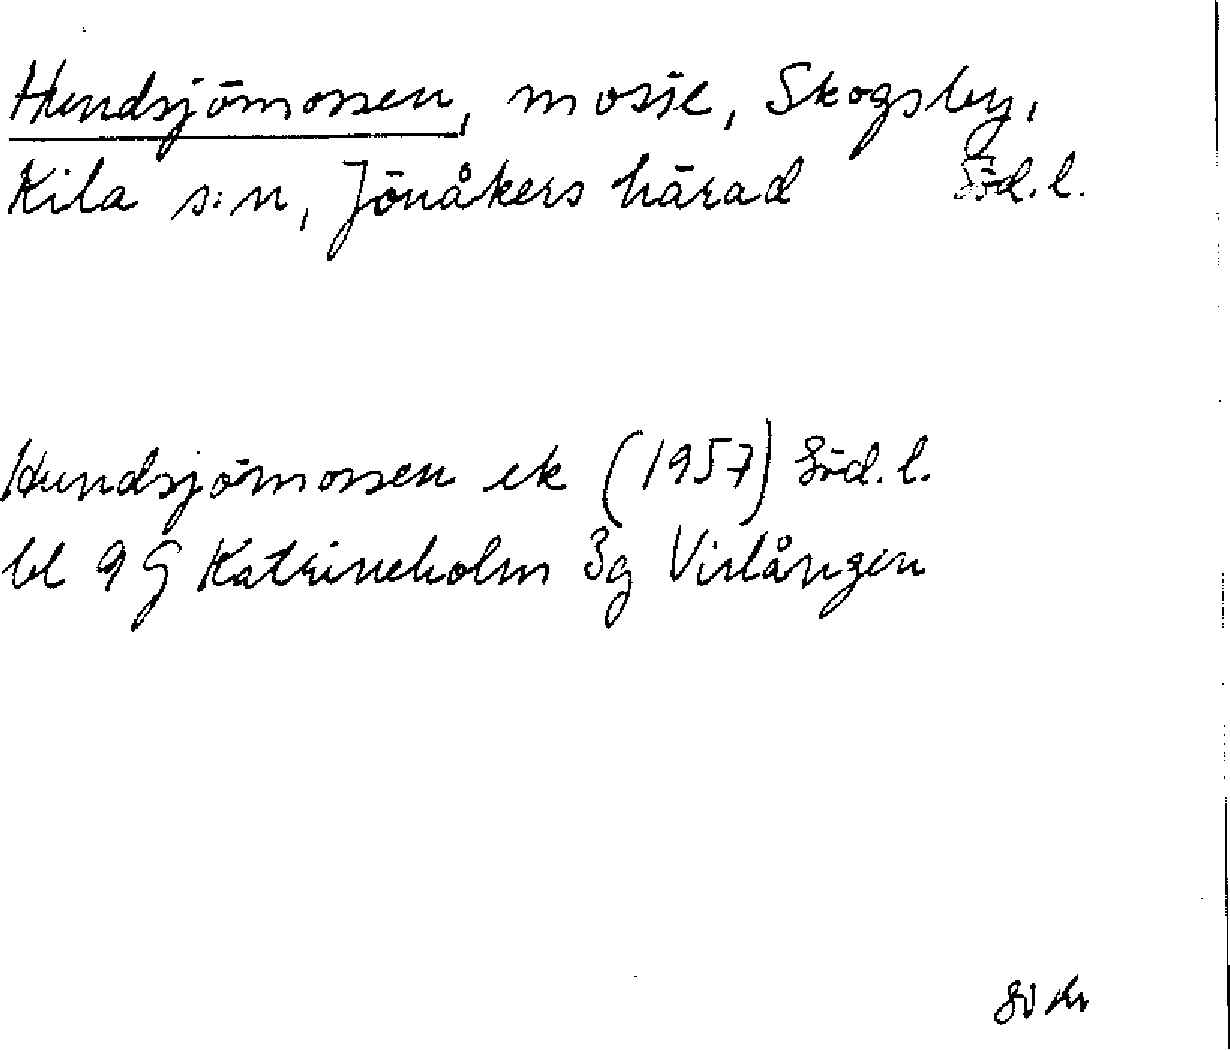 Hundsjömossen, mosse, Skogsby,
Kila s:n, Jönåkers härad Söd.l.
Hundsjömossen ek (1957) Söd.l.
bl 9 G Katrineholm 3g Virlången